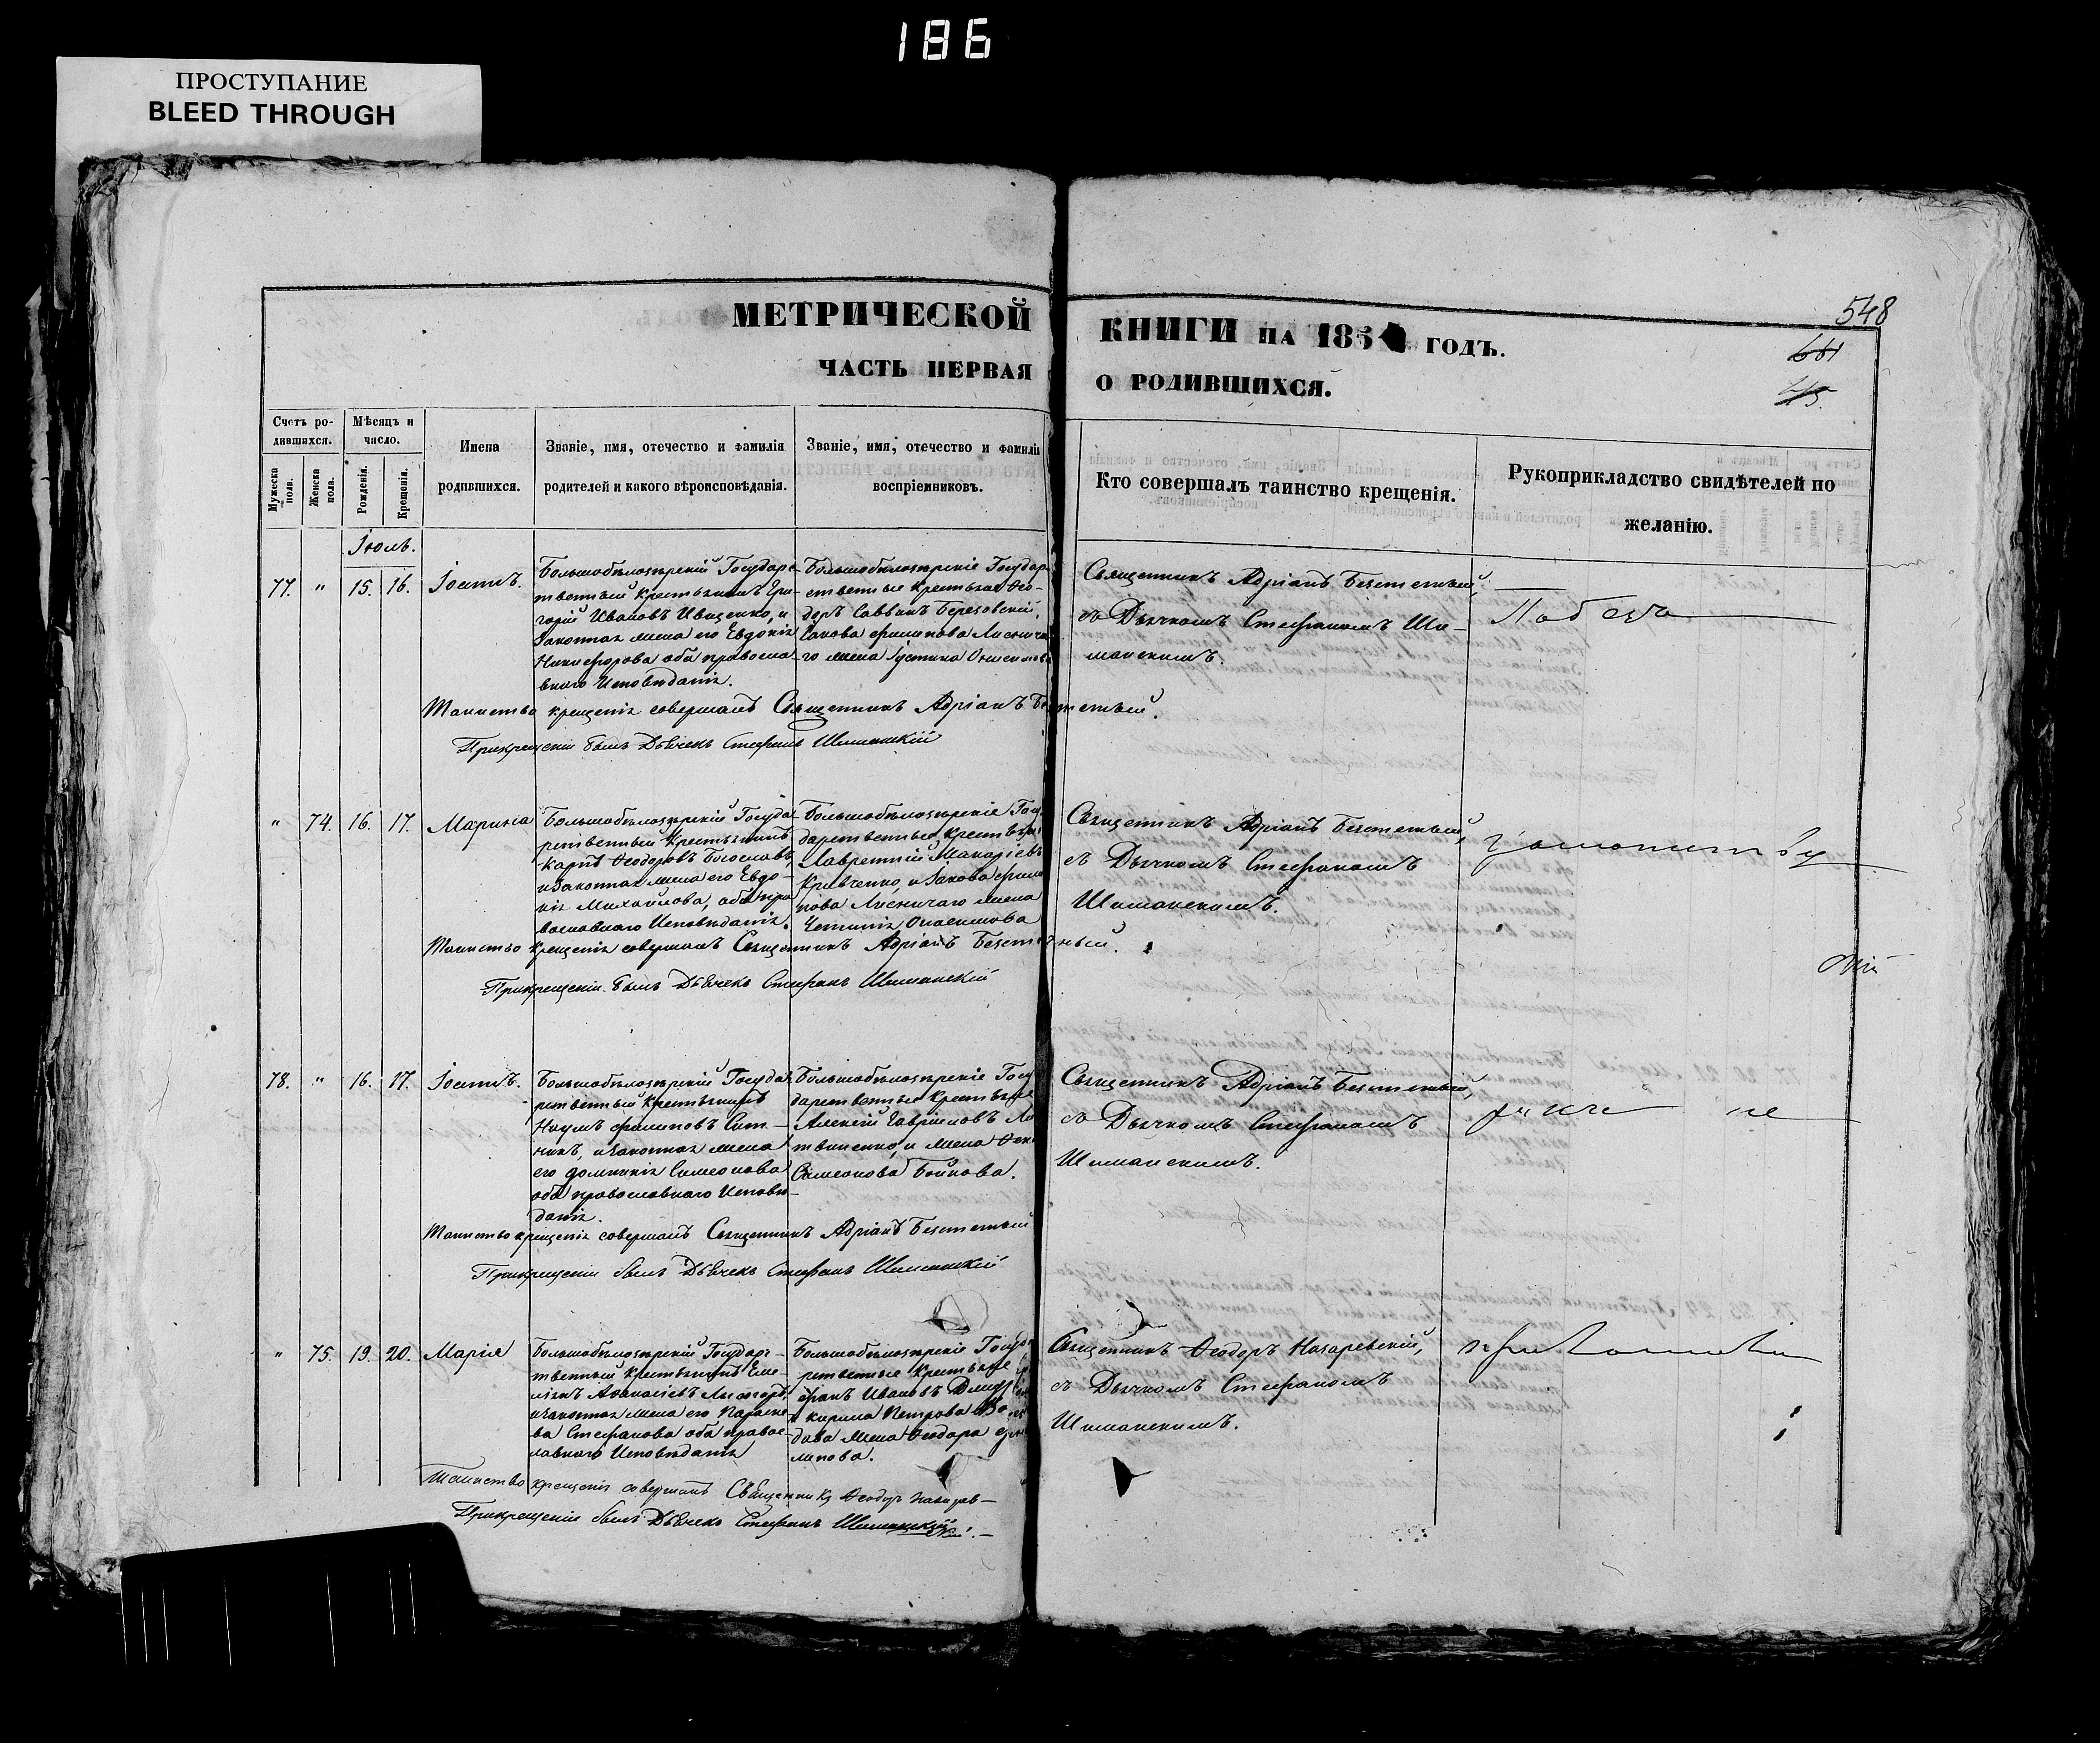 186
ПРОСТУПАНИЕ
BLEED THROUGH
МЕТРИЧЕСКОЙ
КНИГИ НА 185 ГОДЪ.
548
661
ЧАСТЬ ПЕРВАЯ
О РОДИВШИХСЯ.
Счетъ ро-
дившихся.
Мѣсяцъ и
число.
Мужеска
пола.
Женска
пола.
Рожденія.
Крещенія.
Имена
родившихся.
Званіе, имя, отечество и фамилія
родителей и какого вѣроисповѣданія.
Званіе, имя, отечество и фамилія
воспріемниковъ.
Кто совершалъ таинство крещенія.
Рукоприкладство свидѣтелей по
желанію.
Іюль.
77. " 15. 16. Іоаннъ.
Большобѣлозѣрскій Государс-
твенный крестьянинъ Гри-
горій Ивановъ Иващенко, и
Законная жена его Евдокія
Никифорова оба правосла-
внаго Исповѣданія.
Большобѣлозѣрскіе Государ-
ственные крестьяне Ѳео-
доръ Саввинъ Березовскій,
Іакова Филипова Лиснича-
го жена Іустина Онисимова
Священникъ Адріанъ Безсмертный,
съ Дьячкомъ Стефаномъ Ши-
манскимъ.
Таинство крещенія совершалъ Священникъ Адріанъ
При крещеніи былъ Дьячекъ Стефанъ Шиманскій
" 74. 16. 17. Марина
Большобѣлозѣрскій Госуда-
рственный крестьянинъ
Карпъ Ѳеодоровъ Богославъ
и Законная жена его Евдо-
кія Михайлова, оба пра-
вославнаго Исповѣданія.
Большобѣлозѣрскіе Госу-
дарственные крестьяне
Лаврентій Макаріевъ
Кривченко, и Іакова Фили-
пова Лисничаго жена
Онисимова
Священникъ Адріанъ Безсмертный,
съ Дьячкомъ Стефаномъ
Шиманскимъ.
Таинство крещенія совершалъ Священникъ Адріанъ
При крещеніи былъ Дьячекъ Стефанъ Шиманскій
78. " 16. 17. Іоаннъ.
Большобѣлозѣрскій Госуда-
рственный крестьянинъ
Наумъ Филиповъ Сит-
никъ, и законная жена
его Домникія Симеонова
оба православнаго Исповѣ-
данія.
Большобѣлозѣрскіе Госу-
дарственные крестьяне
Алексій Гавріиловъ Ли-
твиненко, и жена
Симеонова Бойкова.
Священникъ Адріанъ Безсмертный,
съ Дьячкомъ Стефаномъ
Шиманскимъ.
Таинство крещенія совершалъ Священникъ Адріанъ Безсмертный
При крещеніи былъ Дьячекъ Стефанъ Шиманскій
" 75. 19. 20. Марія
Большобѣлозѣрскій Государс-
твенный крестьянинъ Еме-
ліянъ Аѳанасіевъ Лисогоръ,
и законная жена его Параске-
ва Стефанова оба правос-
лавнаго Исповѣданія
Большобѣлозѣрскіе Госуда-
рственные крестьяне
Ивановъ
и Кирила Петрова
жена Ѳеодора
липова.
Священникъ Ѳеодоръ Назаревскій,
съ Дьячкомъ Стефаномъ
Шиманскимъ.
Таинство крещенія совершалъ Священникъ Ѳеодоръ
При крещеніи былъ Дьячекъ Стефанъ Шиманскій